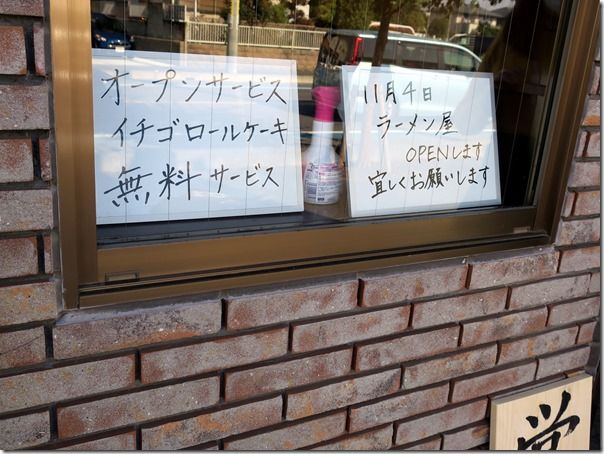 オープンサービス
イチゴロールケーキ
無料サービス
11月4日
ラーメン屋
OPENします
宜しくお願いします